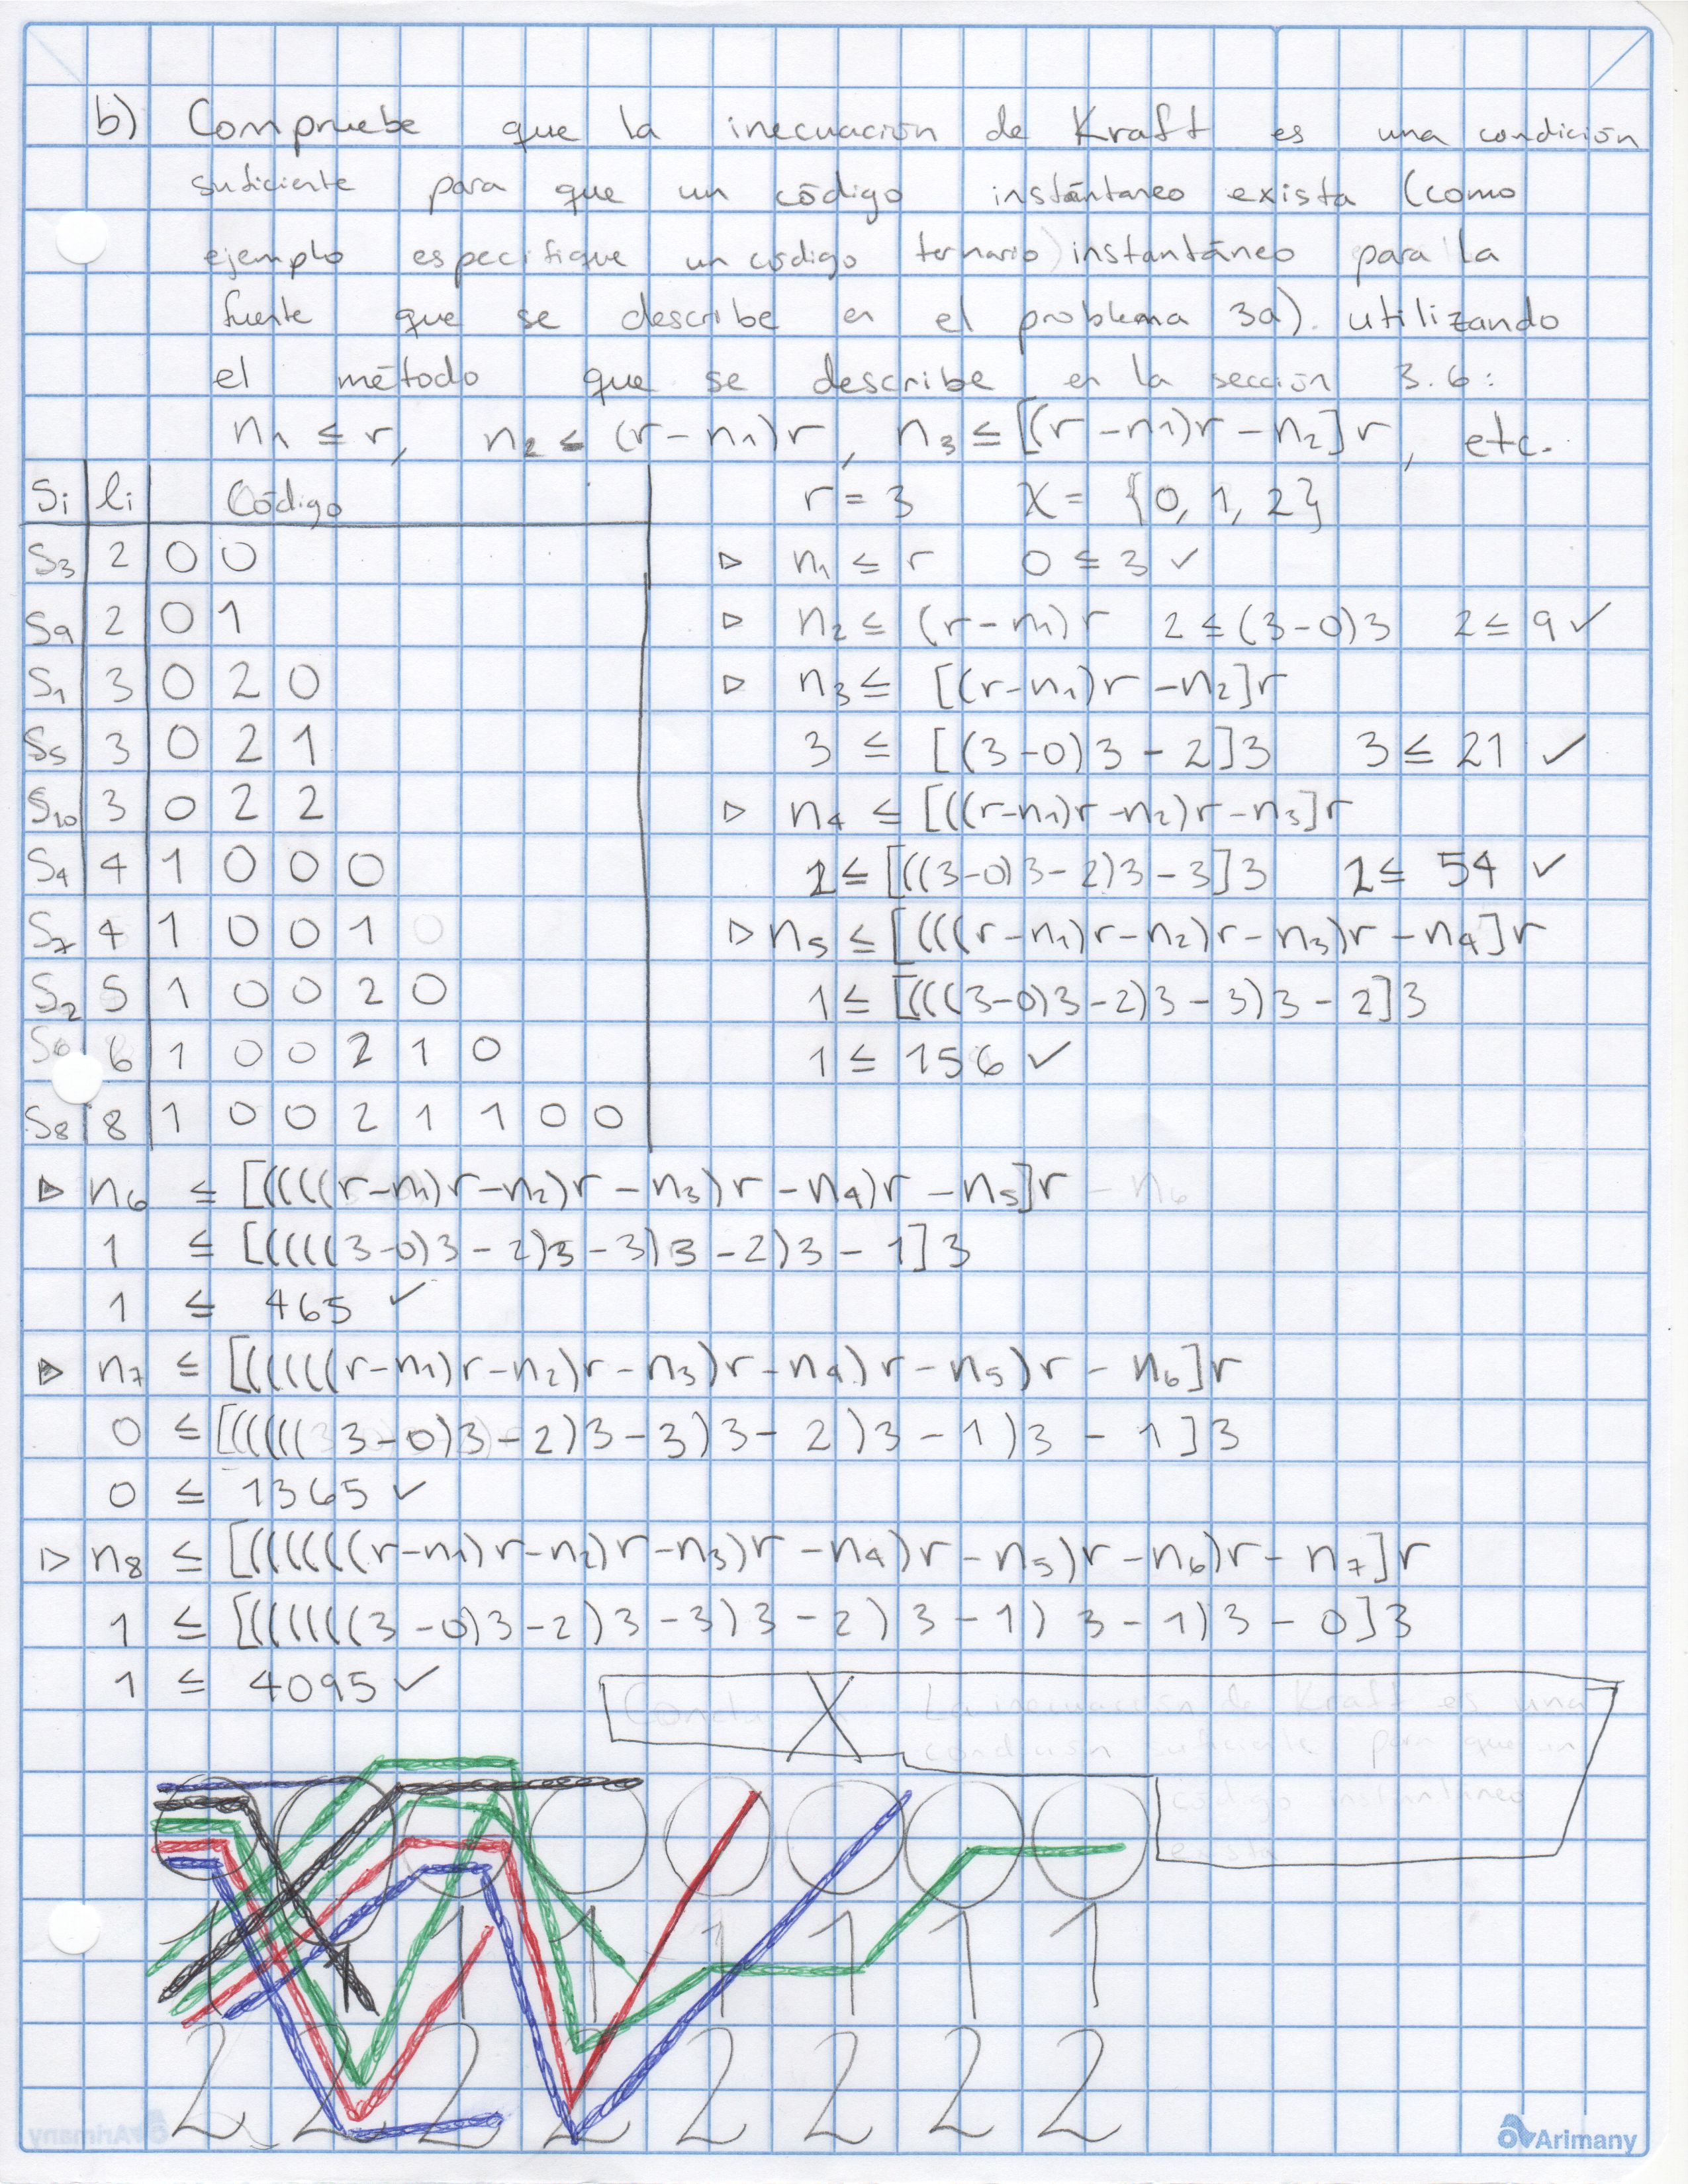 b) Compruebe que la inecuación de Kraft es una condición
suficiente para que un código instántaneo exista (como
ejemplo especifique un código ternario instantáneo para la
fuente que se describe en el problema 3a). utilizando
el método que se describe en la sección 3.6:
n₁ ≤ r, n₂ ≤ (r-n₁)r, n₃ ≤ [(r-n₁)r-n₂]r, etc.
Si li Código
S₃ 2 0 0
S₉ 2 0 1
S₁ 3 0 2 0
S₅ 3 0 2 1
S₁₀ 3 0 2 2
S₄ 4 1 0 0 0
S₇ 4 1 0 0 1
S₂ 5 1 0 0 2 0
S₆ 6 1 0 0 2 1 0
S₈ 8 1 0 0 2 1 1 0 0
r = 3 X = {0, 1, 2}
▷ n₁ ≤ r 0 ≤ 3 ✓
▷ n₂ ≤ (r-n₁)r 2 ≤ (3-0)3 2 ≤ 9 ✓
▷ n₃ ≤ [(r-n₁)r-n₂]r
3 ≤ [(3-0)3-2]3 3 ≤ 21 ✓
▷ n₄ ≤ [((r-n₁)r-n₂)r-n₃]r
2 ≤ [((3-0)3-2)3-3]3 2 ≤ 54 ✓
▷ n₅ ≤ [(((r-n₁)r-n₂)r-n₃)r-n₄]r
1 ≤ [(((3-0)3-2)3-3)3-2]3
1 ≤ 156 ✓
▷ n₆ ≤ [((((r-n₁)r-n₂)r-n₃)r-n₄)r-n₅]r
1 ≤ [((((3-0)3-2)3-3)3-2)3-1]3
1 ≤ 465 ✓
▷ n₇ ≤ [(((((r-n₁)r-n₂)r-n₃)r-n₄)r-n₅)r-n₆]r
0 ≤ [(((((3-0)3-2)3-3)3-2)3-1)3-1]3
0 ≤ 1365 ✓
▷ n₈ ≤ [((((((r-n₁)r-n₂)r-n₃)r-n₄)r-n₅)r-n₆)r-n₇]r
1 ≤ [((((((3-0)3-2)3-3)3-2)3-1)3-1)3-0]3
1 ≤ 4095 ✓
X La inecuación de Kraft es una
condición suficiente para que un
código instantáneo
exista
0 0 0 0 0 0 0 0
1 1 1 1 1 1 1 1
2 2 2 2 2 2 2 2
Arimany